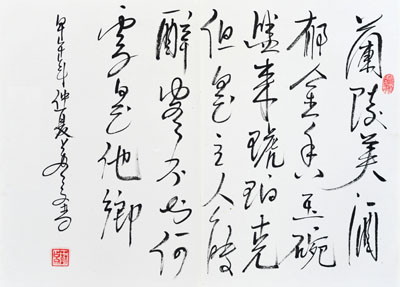 蘭陵美酒
郁金香玉碗
盛来琥珀光
但是主人能
醉客不知何
處是他鄉
年仲夏